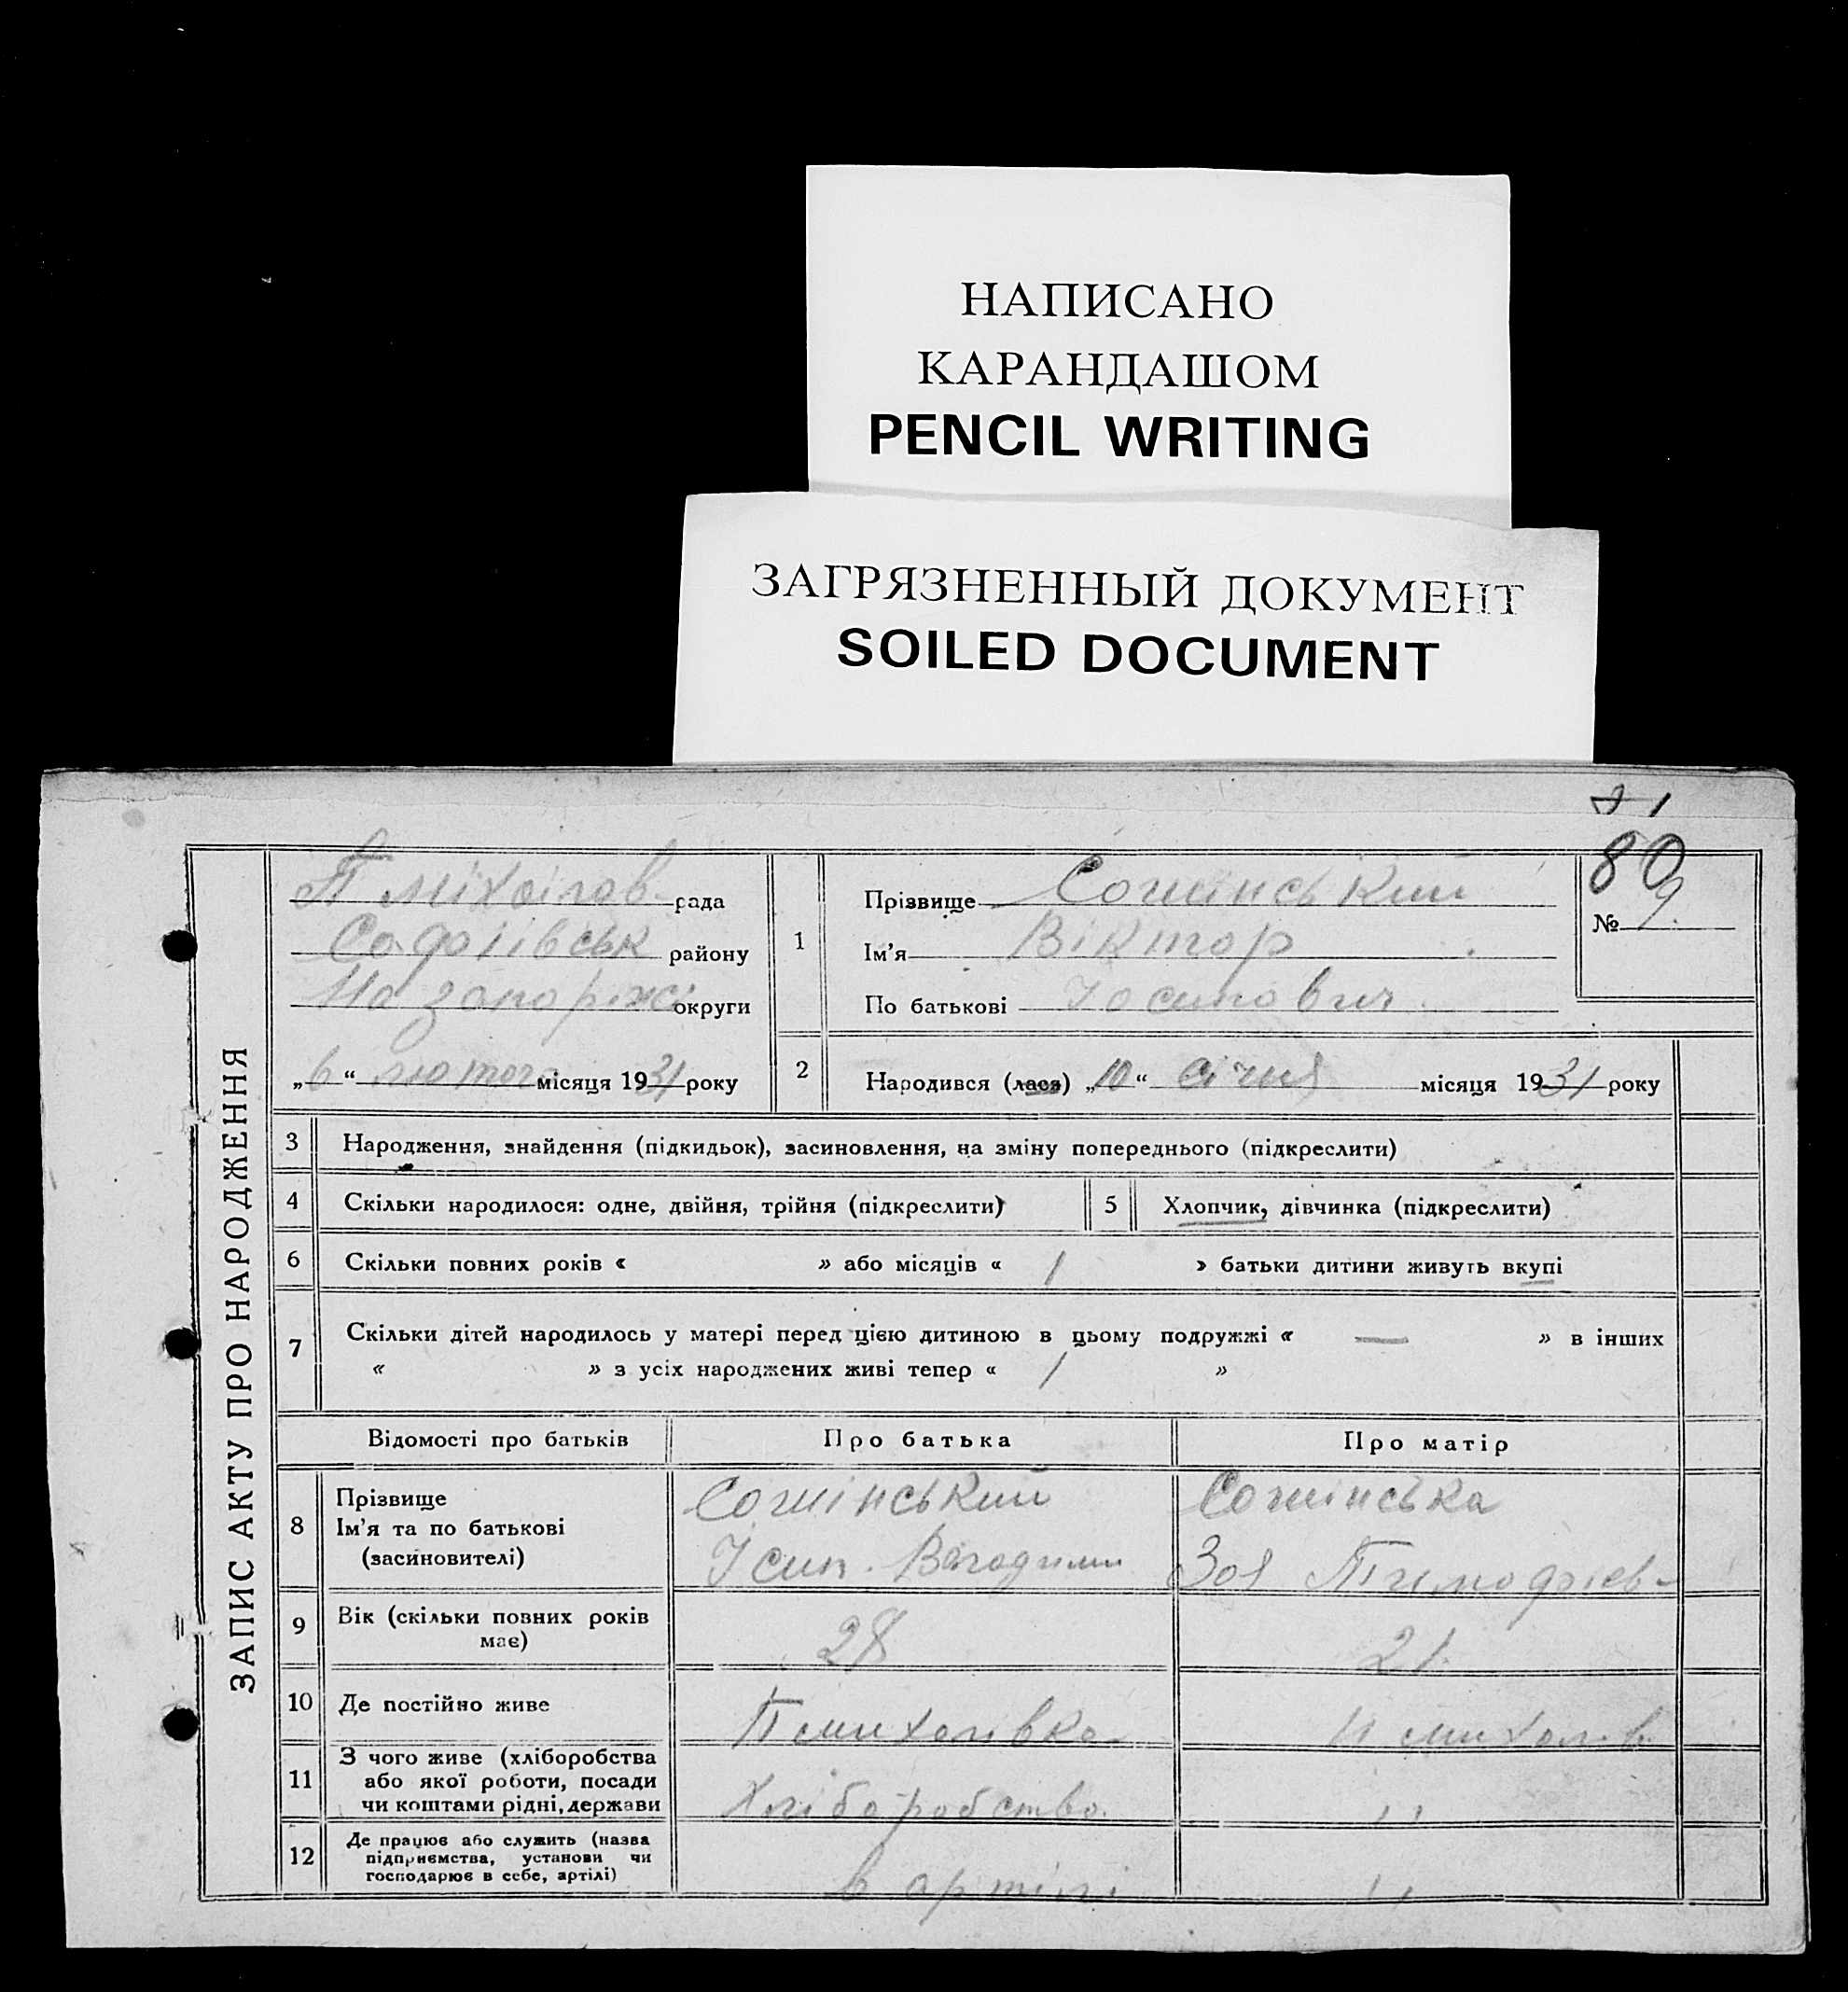 НАПИСАНО
КАРАНДАШОМ
PENCIL WRITING
ЗАГРЯЗНЕННЫЙ ДОКУМЕНТ
SOILED DOCUMENT
81
80
ЗАПИС АКТУ ПРО НАРОДЖЕННЯ
рада
району
округи
„6“ лютого місяця 1931 року
1 Прізвище
Ім'я Віктор
По батькові
№ 9
2 Народився (лася) „10“ січня місяця 1931 року
3 Народження, знайдення (підкидьок), засиновлення, на зміну попереднього (підкреслити)
4 Скільки народилося: одне, двійня, трійня (підкреслити) 5 Хлопчик, дівчинка (підкреслити)
6 Скільки повних років « » або місяців « 1 » батьки дитини живуть вкупі
7 Скільки дітей народилось у матері перед цією дитиною в цьому подружжі « — » в інших
« » з усіх народжених живі тепер « 1 »
Відомості про батьків Про батька Про матір
8 Прізвище
Ім'я та по батькові
(засиновителі) Зоя
9 Вік (скільки повних років
має) 28 21
10 Де постійно живе
11 З чого живе (хліборобства
або якої роботи, посади
чи коштами рідні, держави Хліборобство. 〃
12 Де працює або служить (назва
підприємства, установи чи
господарює в себе, артілі) в артілі 〃